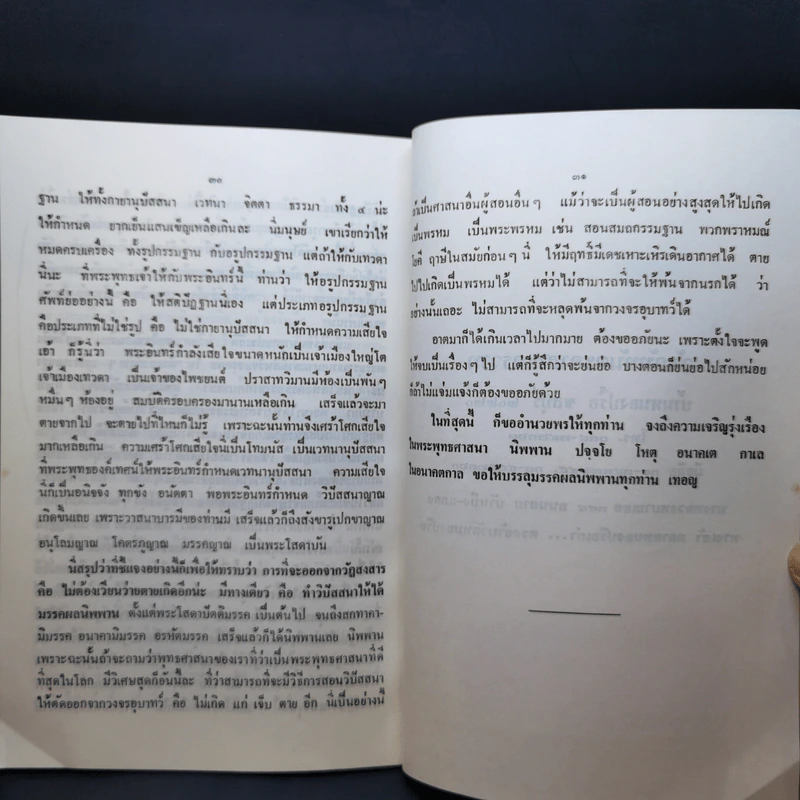 ๓๐
ฐาน ให้ทั้งกายานุปัสสนา เวทนา จิตตา ธรรมา ทั้ง ๔ น่ะ
ให้กำหนด ยากเย็นแสนเข็ญเหลือเกินละ นี่มนุษย์ เขาเรียกว่าให้
หมดครบเครื่อง ทั้งรูปกรรมฐาน กับอรูปกรรมฐาน แต่ถ้าให้กับเทวดา
นี่นะ ที่พระพุทธเจ้าให้กับพระอินทร์นี้ ท่านว่า ให้อรูปกรรมฐาน
ศัพท์ย่ออย่างนี้ คือ ให้สติปัฏฐานนี่เอง แต่ประเภทอรูปกรรมฐาน
คือประเภทที่ไม่ใช่รูป คือ ไม่ใช่กายานุปัสสนา ให้กำหนดความเสียใจ
เอ้า ก็รู้นี่ว่า พระอินทร์กำลังเสียใจขนาดหนักเป็นเจ้าเมืองใหญ่โต
เจ้าเมืองเทวดา เป็นเจ้าของไพชยนต์ ปราสาทวิมานมีห้องเป็นพันๆ
หมื่นๆ ห้องอยู่ สมบัติครอบครองมานานเหลือเกิน เสร็จแล้วจะมา
ตายจากไป จะตายไปที่ไหนก็ไม่รู้ เพราะฉะนั้นท่านจึงเศร้าโศกเสียใจ
มากเหลือเกิน ความเศร้าโศกเสียใจนี่เป็นโทมนัส เป็นเวทนานุปัสสนา
ที่พระพุทธองค์เทศน์ให้พระอินทร์กำหนดเวทนานุปัสสนา ความเสียใจ
นี่ก็เป็นอนิจจัง ทุกขัง อนัตตา พอพระอินทร์กำหนด วิปัสสนาญาณ
เกิดขึ้นเลย เพราะวาสนาบารมีของท่านมี เสร็จแล้วก็ถึงสังขารุเปกขาญาณ
อนุโลมญาณ โคตรภูญาณ มรรคญาณ เป็นพระโสดาบัน
นี่สรุปว่าที่ชี้แจงอย่างนี้ก็เพื่อให้ทราบว่า การที่จะออกจากวัฏสงสาร
คือ ไม่ต้องเวียนว่ายตายเกิดอีกน่ะ มีทางเดียว คือ ทำวิปัสสนาให้ได้
มรรคผลนิพพาน ตั้งแต่พระโสดาปัตติมรรค เป็นต้นไป จนถึงสกทาคา-
มิมรรค อนาคามิมรรค อรหัตมรรค เสร็จแล้วก็ได้นิพพานเลย นิพพาน
เพราะฉะนั้นถ้าจะถามว่าพุทธศาสนาของเราที่ว่าเป็นพระพุทธศาสนาที่ดี
ที่สุดในโลก มีวิเศษสุดก็อันนี้ละ ที่ว่าสามารถที่จะมีวิธีการสอนวิปัสสนา
ให้ตัดออกจากวงจรอุบาทว์ คือ ไม่เกิด แก่ เจ็บ ตาย อีก นี่เป็นอย่างนี้
๓๑
ถ้าเป็นศาสนาอื่นผู้สอนอื่นๆ แม้ว่าจะเป็นผู้สอนอย่างสูงสุดให้ไปเกิด
เป็นพรหม เป็นพระพรหม เช่น สอนสมถกรรมฐาน พวกพราหมณ์
โยคี ฤาษีในสมัยก่อนๆ นี่ ให้มีฤทธิ์มีเดชเหาะเหิรเดินอากาศได้ ตาย
ไปไปเกิดเป็นพรหมได้ แต่ว่าไม่สามารถที่จะให้พ้นจากนรกได้ ว่า
อย่างนั้นเถอะ ไม่สามารถที่จะหลุดพ้นจากวงจรอุบาทว์ได้
อาตมาก็ได้เกินเวลาไปมากมาย ต้องขออภัยนะ เพราะตั้งใจจะพูด
ให้จบเป็นเรื่องๆ ไป แต่ก็รู้สึกว่าจะย่นย่อ บางตอนก็ย่นย่อไปสักหน่อย
ก็ถ้าไม่แจ่มแจ้งก็ต้องขออภัยด้วย
ในที่สุดนี้ ก็ขออำนวยพรให้ทุกท่าน จงถึงความเจริญรุ่งเรือง
ในพระพุทธศาสนา นิพพาน ปจฺจโย โหตุ อนาคเต กาเล
ในอนาคตกาล ขอให้บรรลุมรรคผลนิพพานทุกท่าน เทอญ